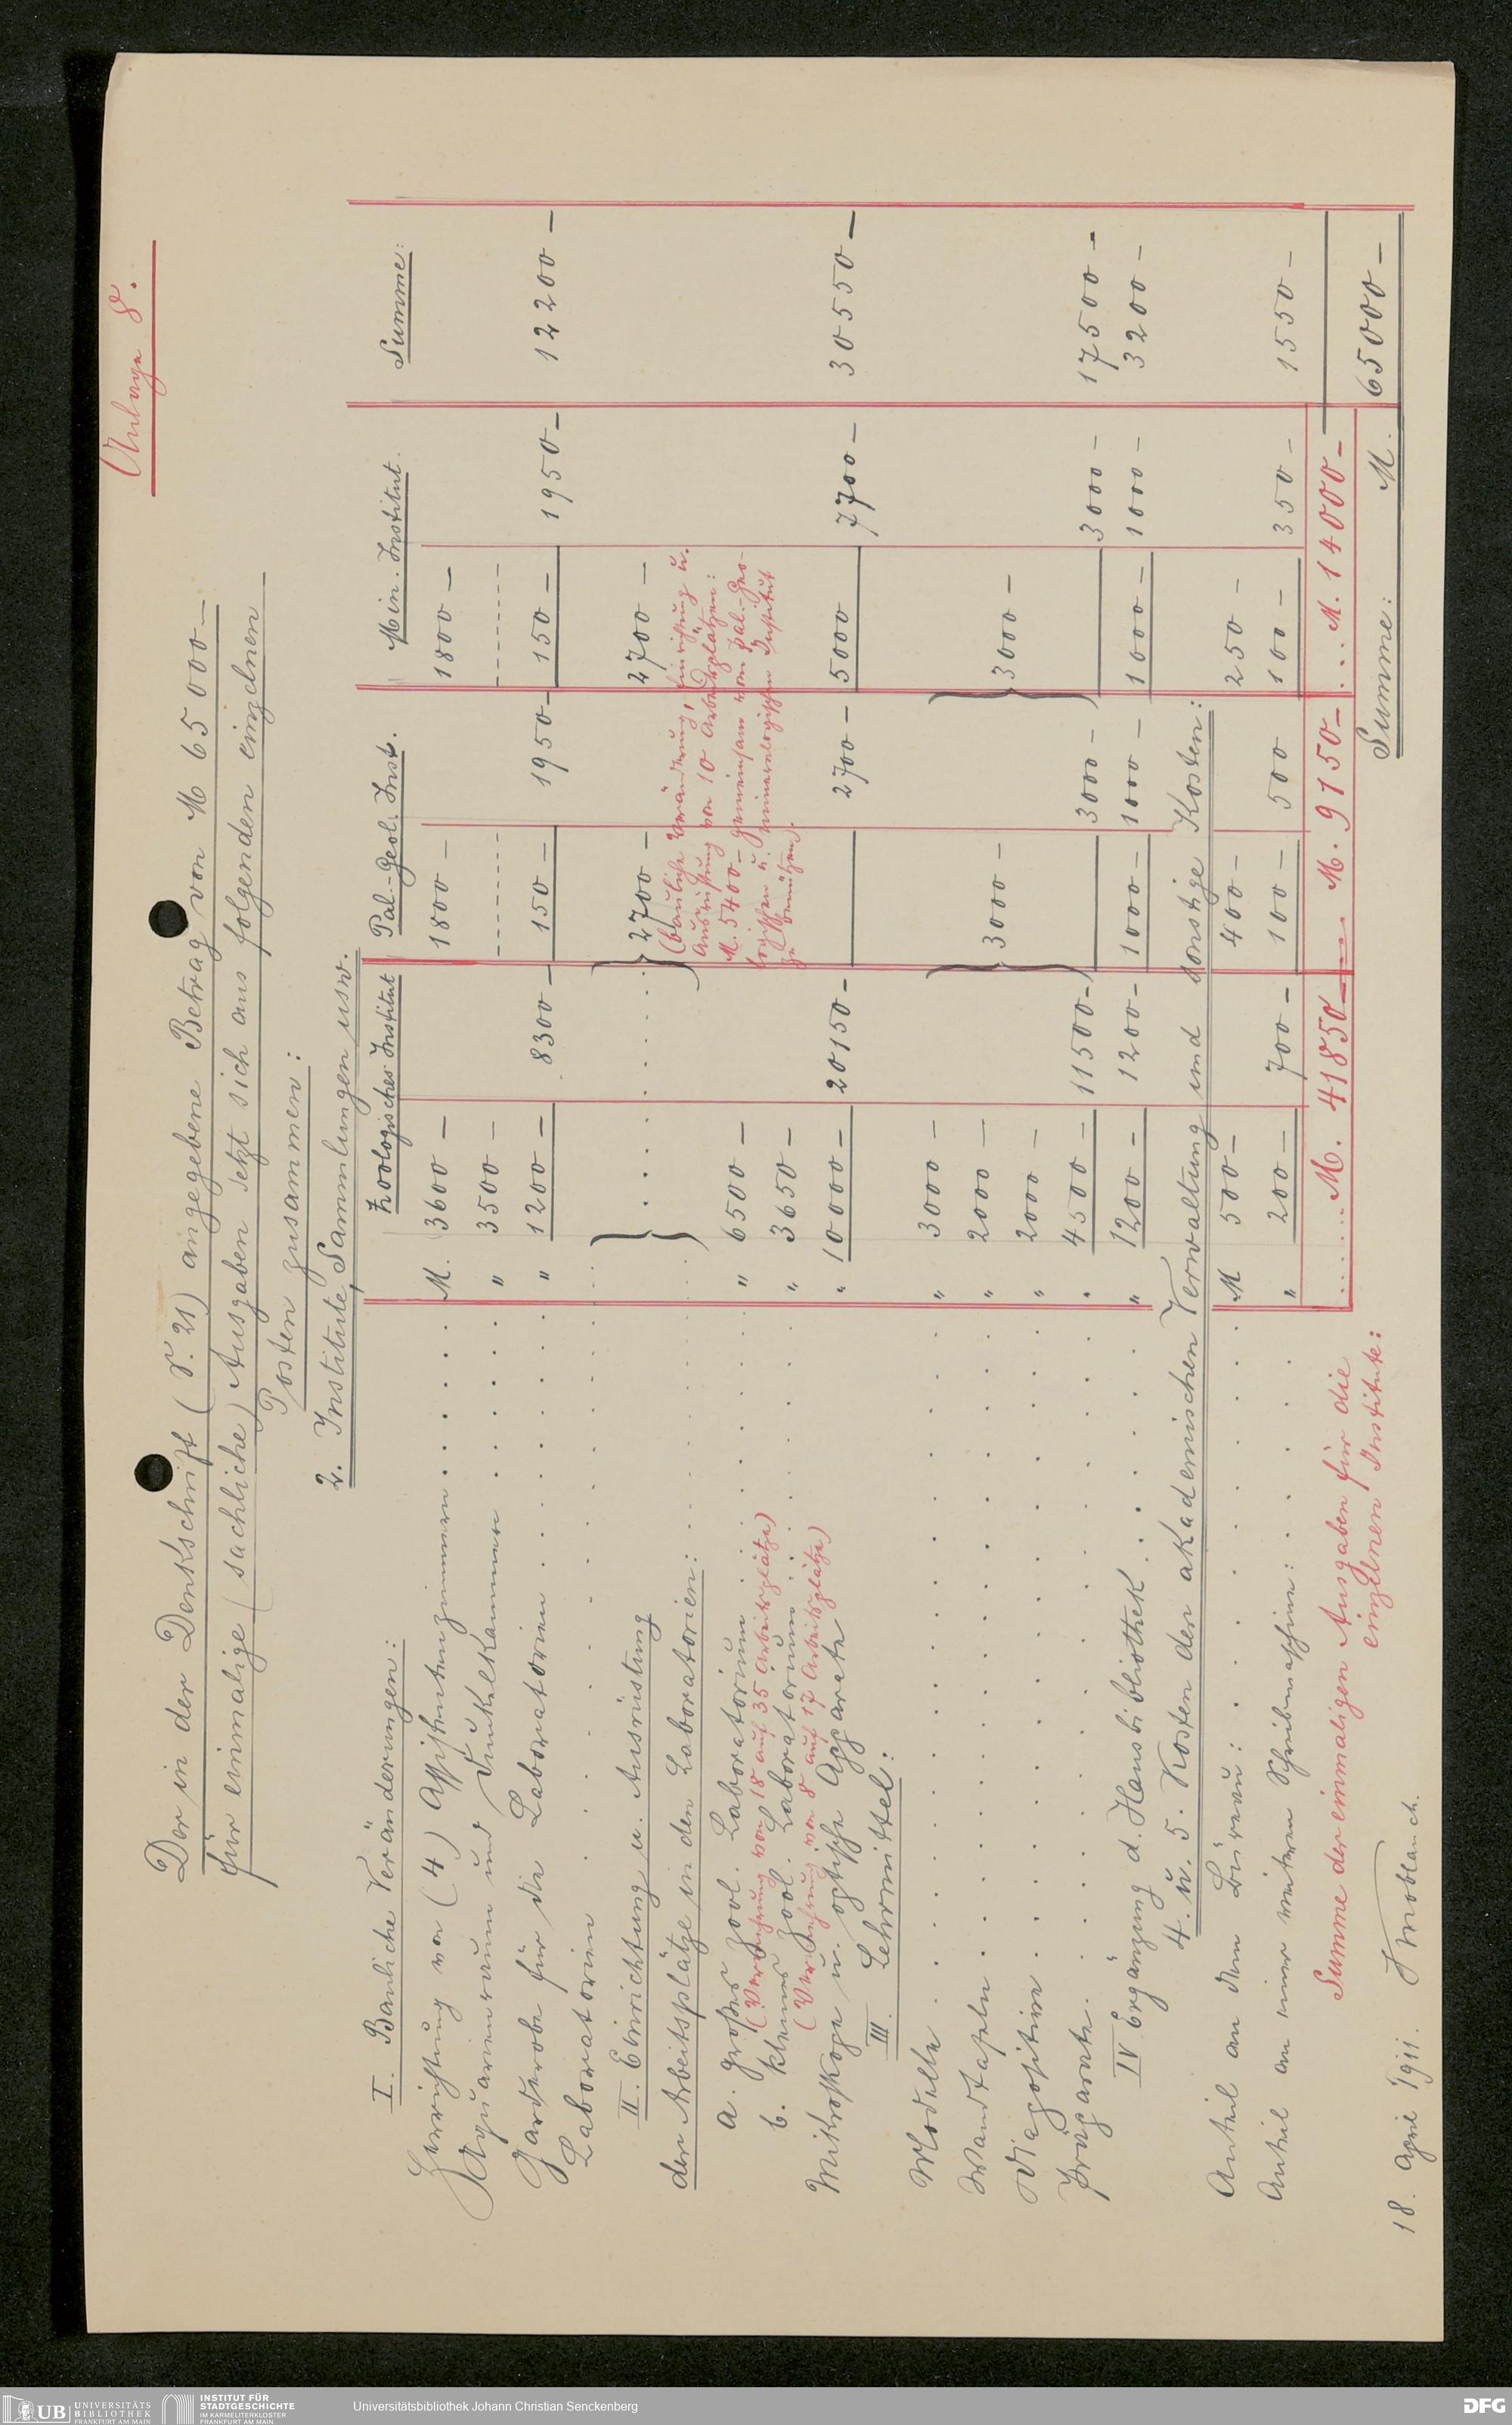 Anlage 8.
Der in der Denkschrift (S. 21) angegebene Betrag von M 65000—
für einmalige (sachliche) Ausgaben setzt sich aus folgenden einzelnen
Posten zusammen:
2. Institute, Sammlungen usw.
Zoologisches Institut Pal.-Geol. Inst. Min. Institut. Summe:
I. Bauliche Veränderungen:
Herrichtung von (4) Assistentenzimmern . . . . . M. 3600 — 1800 — 1800 —
Aquarienraum und Dunkelkammer . . . . " 3500 — ------- -------
Garderobe für die Laboratorien . . . . . " 1200 — 8300 — 150 — 1950— 150 — 1950— 12200 —
Laboratorien
II. Einrichtung u. Ausrüstung
der Arbeitsplätze in den Laboratorien: . . . . 2700 — 2700 —
(bauliche Veränderung, Einrichtung u.
Ausrüstung von 10 Arbeitsplätzen:
M. 5400— gemeinsam vom pal.-geo-
logischen u. mineralogischen Institut
zu benützen).
a. großes zool. Laboratorium . . . " 6500 —
(Vermehrung von 18 auf 35 Arbeitsplätze)
b. kleines zool. Laboratorium . . . " 3650 —
(Vermehrung von 8 auf 17 Arbeitsplätze)
Mikroskope u. optische Apparate " 10000 — 20150 — 2700 — 5000 7700 — 30550 —
III. Lehrmittel:
Modelle . . . . . . . " 3000 —
Wandtafeln . . . . . . " 2000 — 3000 — 3000 —
Diapositive . . . . . . " 2000 —
Präparate . . . . . . " 4500 — 11500— 3000 — 3000 — 17500 —
IV. Ergänzung d. Hausbibliothek . . . . . " 1200 — 1200— 1000— 1000 — 1000 — 1000 — 3200 —
4. u. 5. Kosten der akademischen Verwaltung und sonstige Kosten:
Anteil an dem Büreau: . . . . . M 500— 400— 250 —
Anteil an einer weiteren Schreibmaschine: . . . . " 200— 700 — 100 — 500 100 — 350 — 1550 —
Summe der einmaligen Ausgaben für die
einzelnen Institute: ...... M. 41850— M. 9150— ... M. 14000—
Summe: M. 65000 —
18. April 1911. Knoblauch.
UB UNIVERSITÄTS
BIBLIOTHEK
FRANKFURT AM MAIN
INSTITUT FÜR
STADTGESCHICHTE
IM KARMELITERKLOSTER
FRANKFURT AM MAIN
Universitätsbibliothek Johann Christian Senckenberg
DFG